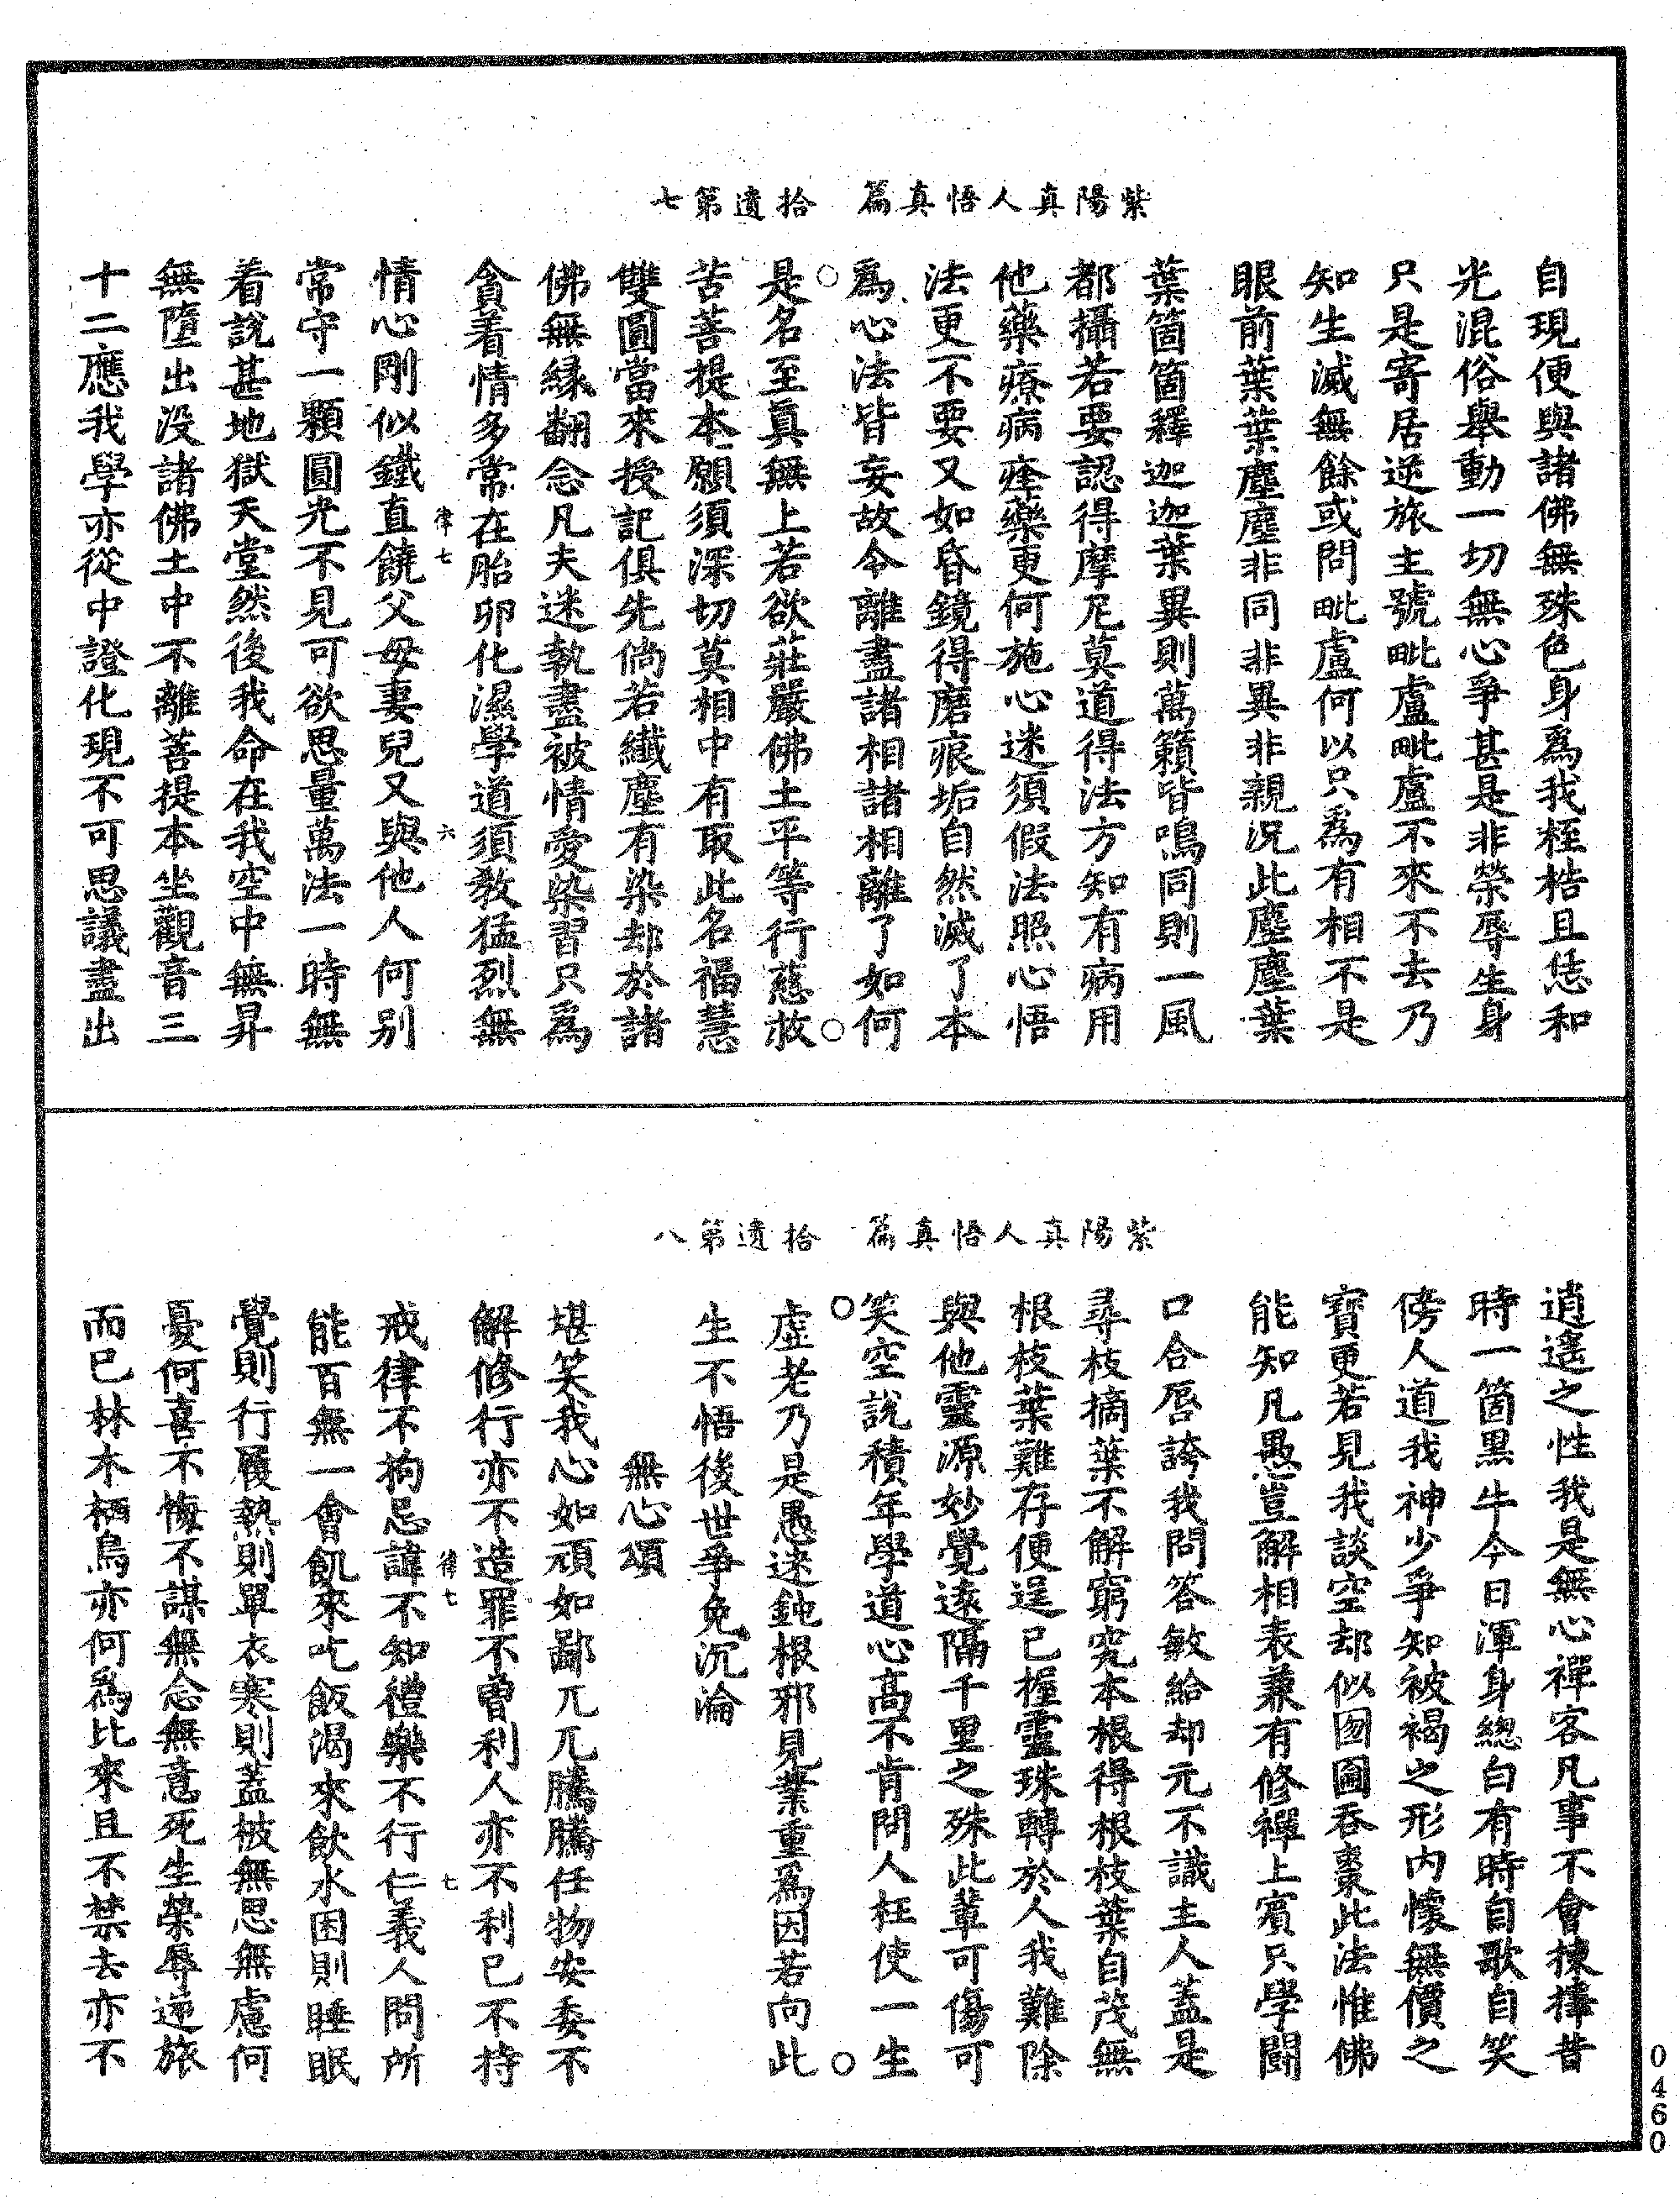 紫陽真人悟真篇　拾遺第七
自現便與諸佛無殊色身爲我桎梏且恁和
光混俗舉動一切無心爭甚是非榮辱生身
只是寄居逆旅主號毗盧毗盧不來不去乃
知生滅無餘或問毗盧何以只爲有相不是
眼前葉葉塵塵非同非異非親况此塵塵葉
葉箇箇釋迦迦葉異則萬籟皆鳴同則一風
都攝若要認得摩尼莫道得法方知有病用
他藥療病痊藥更何施心迷須假法照心悟
法更不要又如昏鏡得磨痕垢自然滅了本
爲心法皆妄故令離盡諸相諸相離了如何
是名至真無上若欲莊嚴佛土平等行慈救
苦菩提本願須深切莫相中有取此名福慧
雙圓當來授記俱先倘若纖塵有染却於諸
佛無緣翻念凡夫迷執盡被情愛染習只爲
貪着情多常在胎卵化濕學道須教猛烈無
律七　六
情心剛似鐵直饒父母妻兒又與他人何别
常守一顆圓光不見可欲思量萬法一時無
着說甚地獄天堂然後我命在我空中無昇
無墮出没諸佛土中不離菩提本坐觀音三
十二應我學亦從中證化現不可思議盡出
紫陽真人悟真篇　拾遺第八
逍遙之性我是無心禪客凡事不會揀擇昔
時一箇黑牛今日渾身總白有時自歌自笑
傍人道我神少爭知被褐之形内懷無價之
寶更若見我談空却似囫圇吞棗此法惟佛
能知凡愚豈解相表兼有修禪上賓只學鬭
口合唇誇我問答敏給却元不識主人蓋是
尋枝摘葉不解窮究本根得根枝葉自茂無
根枝葉難存便逞已握靈珠轉於人我難除
與他靈源妙覺遠隔千里之殊此輩可傷可
笑空說積年學道心高不肯問人枉使一生
虛老乃是愚迷鈍根邪見業重爲因若向此
生不悟後世爭免沉淪
無心頌
堪笑我心如頑如鄙兀兀騰騰任物安委不
解修行亦不造罪不曾利人亦不利已不持
律七　七
戒律不拘忌諱不知禮樂不行仁義人問所
能百無一會飢來吃飯渴來飲水困則睡眠
覺則行履熱則單衣寒則蓋被無思無慮何
憂何喜不悔不謀無念無意死生榮辱逆旅
而已林木栖鳥亦何爲比來且不禁去亦不
0460